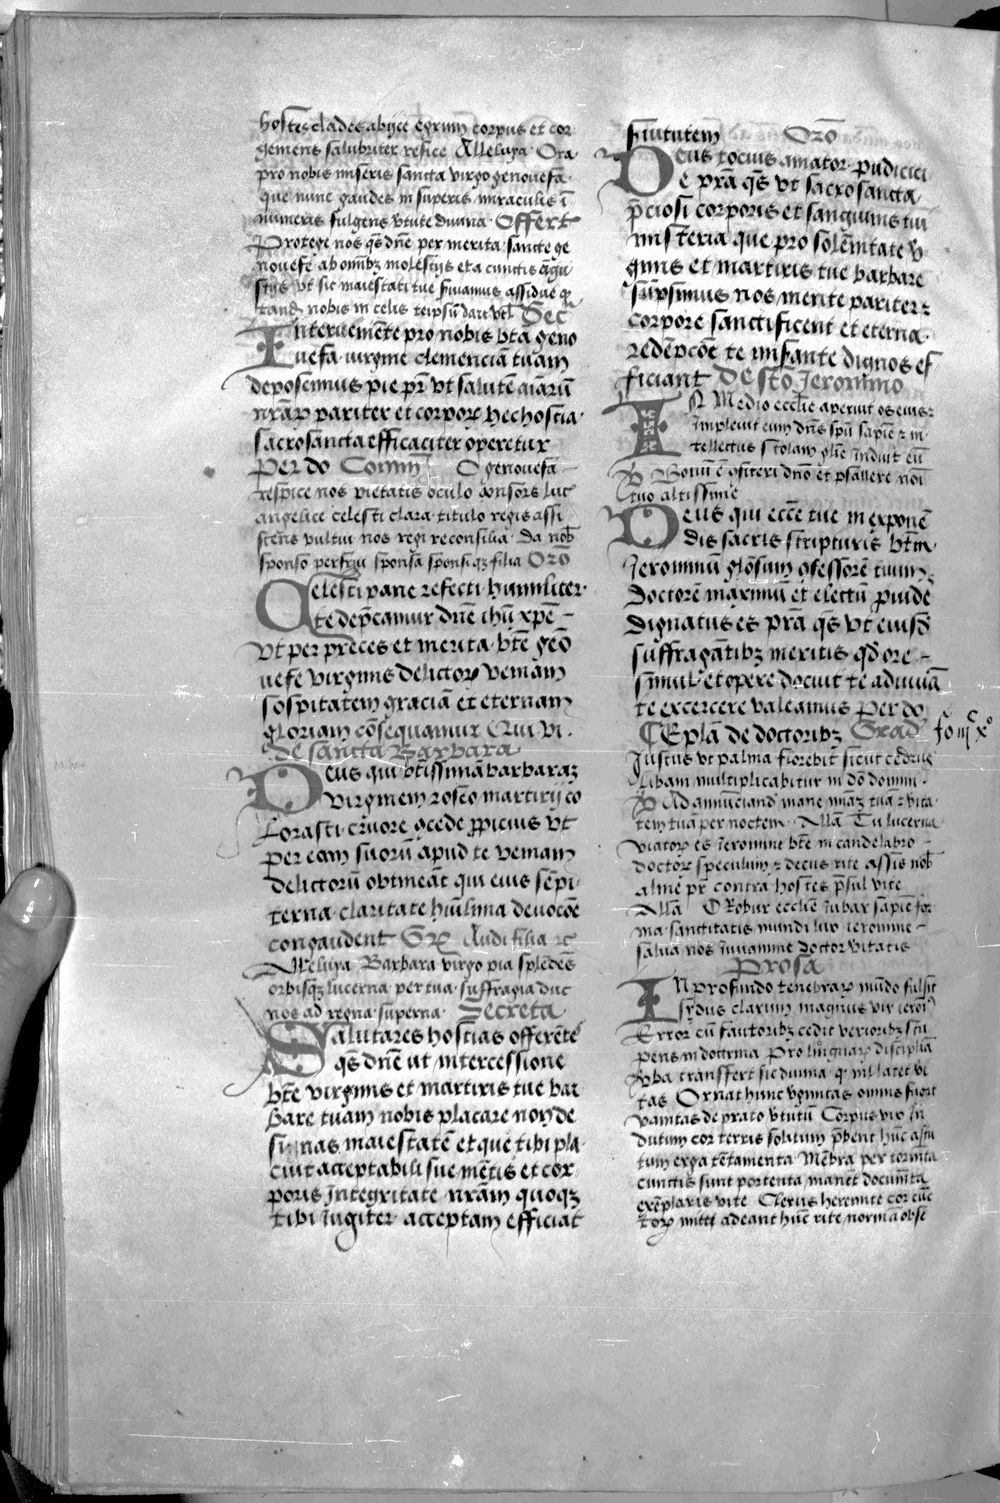 hostis clades abijce egrum corpus et cor
gemens salubriter refice Alleluya · Ora
pro nobis miseris sancta virgo genouefa ·
que nunc gaudes in superis miraculis ī
numeris fulgens v̄tute diuina · Offert
Protege nos q̄s dn̄e per merita sancte ge
nouefe ab om̄ibꝫ molestijs et a cunctis
vt sic maiestati tue s̄uiamus assidue
nobis in celis teipsū Sec̄
Interuemēte pro nobis bt̄a geno
uefa · virgine clemenciā tuam
deposcimus pie pr̄ vt salutē aīarū
nr̄aꝝ pariter et corpoꝝ hec hostia ·
sacrosancta efficaciter operetur
Per do Comm̄ O genouefa
respice nos pietatis oculo consors luc
angelice celesti clara titulo regis assi
stens vultui nos regi reconsilia · da nob̄
sponso perfrui sponsa sponsi qꝫ filia Orō
Celesti pane refecti · humiliter ·
te dep̄camur dn̄e ihū xpē
Vt per preces et merita · bt̄e geō
uefe virginis delictoꝝ veniam
sospitatem graciā et eternam
gloriam cōsequamur Qui vi ·
de sancta Barbara
Deus qui bt̄issimā barbaraꝫ
virginem roseo martirij co
lorasti cruore 9cede ꝓpicius vt
per eam suorū apud te veniam
delictorū obtineāt qui eius sēpi
terna · claritate hūilima deuocōe
congaudent Gr̄ Audi filia ⁊c̄
Alleluya Barbara virgo pia splēdēs
orbisqꝫ lucerna per tua · suffragia duc
nos ad regna superna · Secreta
Salutares hostias offerētē
q̄s dn̄e ut intercessione
bt̄e virginis et martiris tue bar
bare tuam nobis placare non de
sinas maiestatē et que tibi pla
cuit acceptabili sue mētis et cor
poris Integritate nr̄am quoqꝫ
tibi iugiter acceptam efficiat
s̄uitutem Orō
Deus tocius amator pudicici
e pr̄a q̄s vt sacrosancta
p̄ciosi corporis et sanguinis tui
misteria que pro solēnitate v̄
ginis et martiris tue barbare
sūpsimus nos mente pariter ⁊
corpore sanctificent et eterna
redēpcōe te iu͞sante dignos ef
ficiant De sct̄o Jeronimo
IN Medio eccl̄ie aperuit os eius ⁊
Impleuit eum dn̄s spū sapīe ⁊ in
tellectus stolam gl̄ie induit eū
V̄ Bonū ē 9fiteri dn̄o et psallere noī
tuo altissime
Deus qui ecc̄e tue in exponē
dis sacris scripturis bt̄m
Jeronimū gl̄osum 9fessorē tuum
doctorē maximū et electū ꝓuide
dignatus es pr̄a q̄s vt eiusd̄
suffragātibꝫ meritis qd̄ ore
simul et opere docuit te adiuuā
te excercere valeamus Per do
Epl̄a de doctoribꝫ Grad̄
Justus vt palma florebit sicut cedrus
libani multiplicabitur in dō domini ·
V̄ Ad annūciand̄ mane mīaꝫ tuā ⁊ v̄ita
tem tuā per noctem · All̄a Tu lucerna
viatoꝝ es Jeronime bt̄e in candelabro
doctoꝝ speculum ⁊ decus rite assis nob̄
alme pr̄ contra hostes p̄sul vite
All̄a O Robur eccl̄ie iubar sapīe for
ma sanctitatis mundi lux ieronime
salua nos iuuamine doctor v̄itatis
Prosa
IN profundo tenebraꝝ mūdo fulsit
sydus clarum magnus vir ieroī
Error cū fautoribꝫ cedit verioribꝫ stu
pens in doctrina Pro linguaꝝ disciplīa
v̄ba transffert sic diuina · qꝫ nil latet v̄i
tas Ornat hunc v̄ginitas omnis fuerit
vanitas de prato v̄tutū Corpus vix in
dutum cor terris solutum p̄bent hūc astu
tum erga tētamenta Mēbra per tormta
cunctis sunt portenta manēt docum̄ta
exēplaris vite Clerus heremite cor eūc
toꝝ mitti adeant hūc rite normā obse